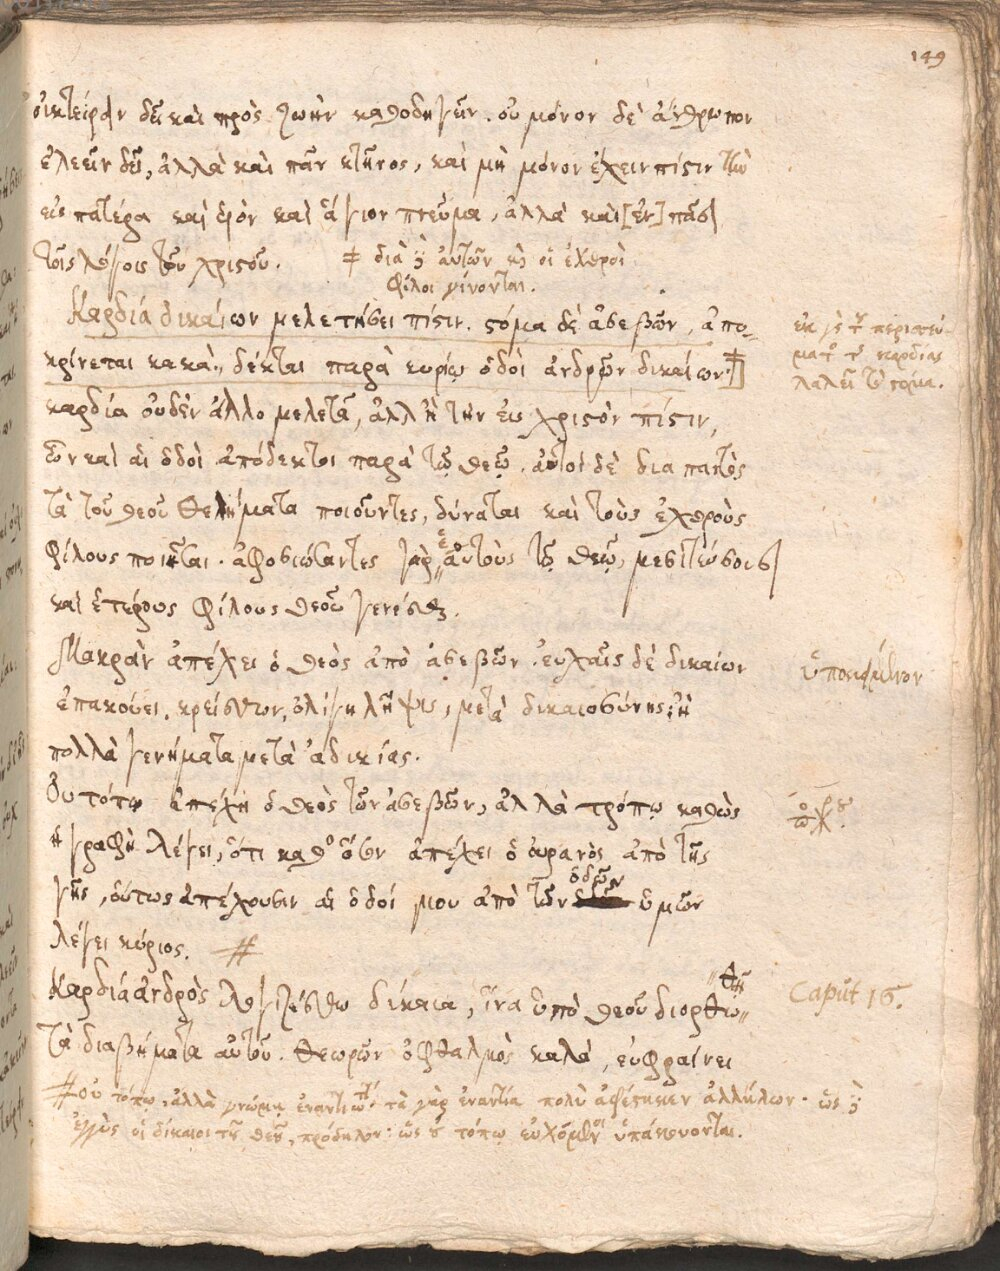 149
οἰκτείρειν δεῖ καὶ πρὸς ζωὴν καθοδηγεῖν. οὐ μόνον δὲ ἄνθρωπον
ἐλεεῖν δεῖ, ἀλλὰ καὶ πᾶν κτῆνος, καὶ μὴ μόνον ἔχειν πίστιν τὴν
εἰς πατέρα καὶ υἱὸν καὶ ἅγιον πνεῦμα, ἀλλὰ καὶ [ἐν] πᾶσι
τοῖς λόγοις τοῦ χριστοῦ. ǂ διὰ γ αὐτῶν κ οἱ ἐχθροὶ
φίλοι γίνονται.
Καρδία δικαίων μελετήσει πίστιν. στόμα δὲ ἀσεβῶν, ἀπο-
κρίνεται κακά., δέκται παρὰ κυρίῳ ὁδοὶ ἀνδρῶν δικαίων. ǂ]
ἐκ γὰρ τοῦ περισσεύ-
ματος τῆς καρδίας
λαλεῖ τὸ στόμα.
καρδία οὐδὲν ἄλλο μελετᾷ, ἀλλ' ἢ τὴν εἰς χριστὸν πίστιν,
ὧν καὶ αἱ ὁδοὶ ἀπόδεκτοι παρὰ τῷ θεῷ. αὐτοὶ δὲ διαπαντὸς
τὰ τοῦ θεοῦ θελήματα ποιοῦντες, δύναται καὶ τοὺς ἐχθροὺς
φίλους ποιῆσαι. ἀφοσιώσαντες γὰρ ἑαυτοὺς τῷ θεῷ, μεσιτεύσουσι
καὶ ἑτέρους φίλους θεοῦ γενέσθαι.
Μακρὰν ἀπέχει ὁ θεὸς ἀπὸ ἀσεβῶν. εὐχαῖς δὲ δικαίων
ὑποκείμενον
ἐπακούει. κρείσσων, ὀλίγη λῆψις, μετὰ δικαιοσύνης: ἢ
πολλὰ γενήματα μετὰ ἀδικίας.
Οὐ τόπῳ ἀπέχει ὁ θεὸς τῶν ἀσεβῶν, ἀλλὰ τρόπῳ καθὼς
ἡ γραφὴ λέγει, ὅτι καθ' ὅσον ἀπέχει ὁ οὐρανὸς ἀπὸ τῆς
γῆς, οὕτως ἀπέχουσιν αἱ ὁδοί μου ἀπὸ τῶν ὁδῶν ὑμῶν
λέγει κύριος. ⧣
Καρδία ἀνδρὸς λογιζέσθω δίκαια, ἵνα ὑπὸ θεοῦ διορθωθῇ
Caput 16.
τὰ διαβήματα αὐτοῦ. θεωρῶν ὀφθαλμὸς καλά, εὐφραίνει
⧣ οὐ τόπῳ, ἀλλὰ γνώμῃ ἐναντίᾳ. τὰ γὰρ ἐναντία πολὺ ἀφέστηκεν ἀλλήλων. ὡς γ
ἐγγὺς οἱ δίκαιοι τῷ θεῷ, πρόδηλον: ὡς τόπῳ εὐχόμενοι ὑπακούονται.